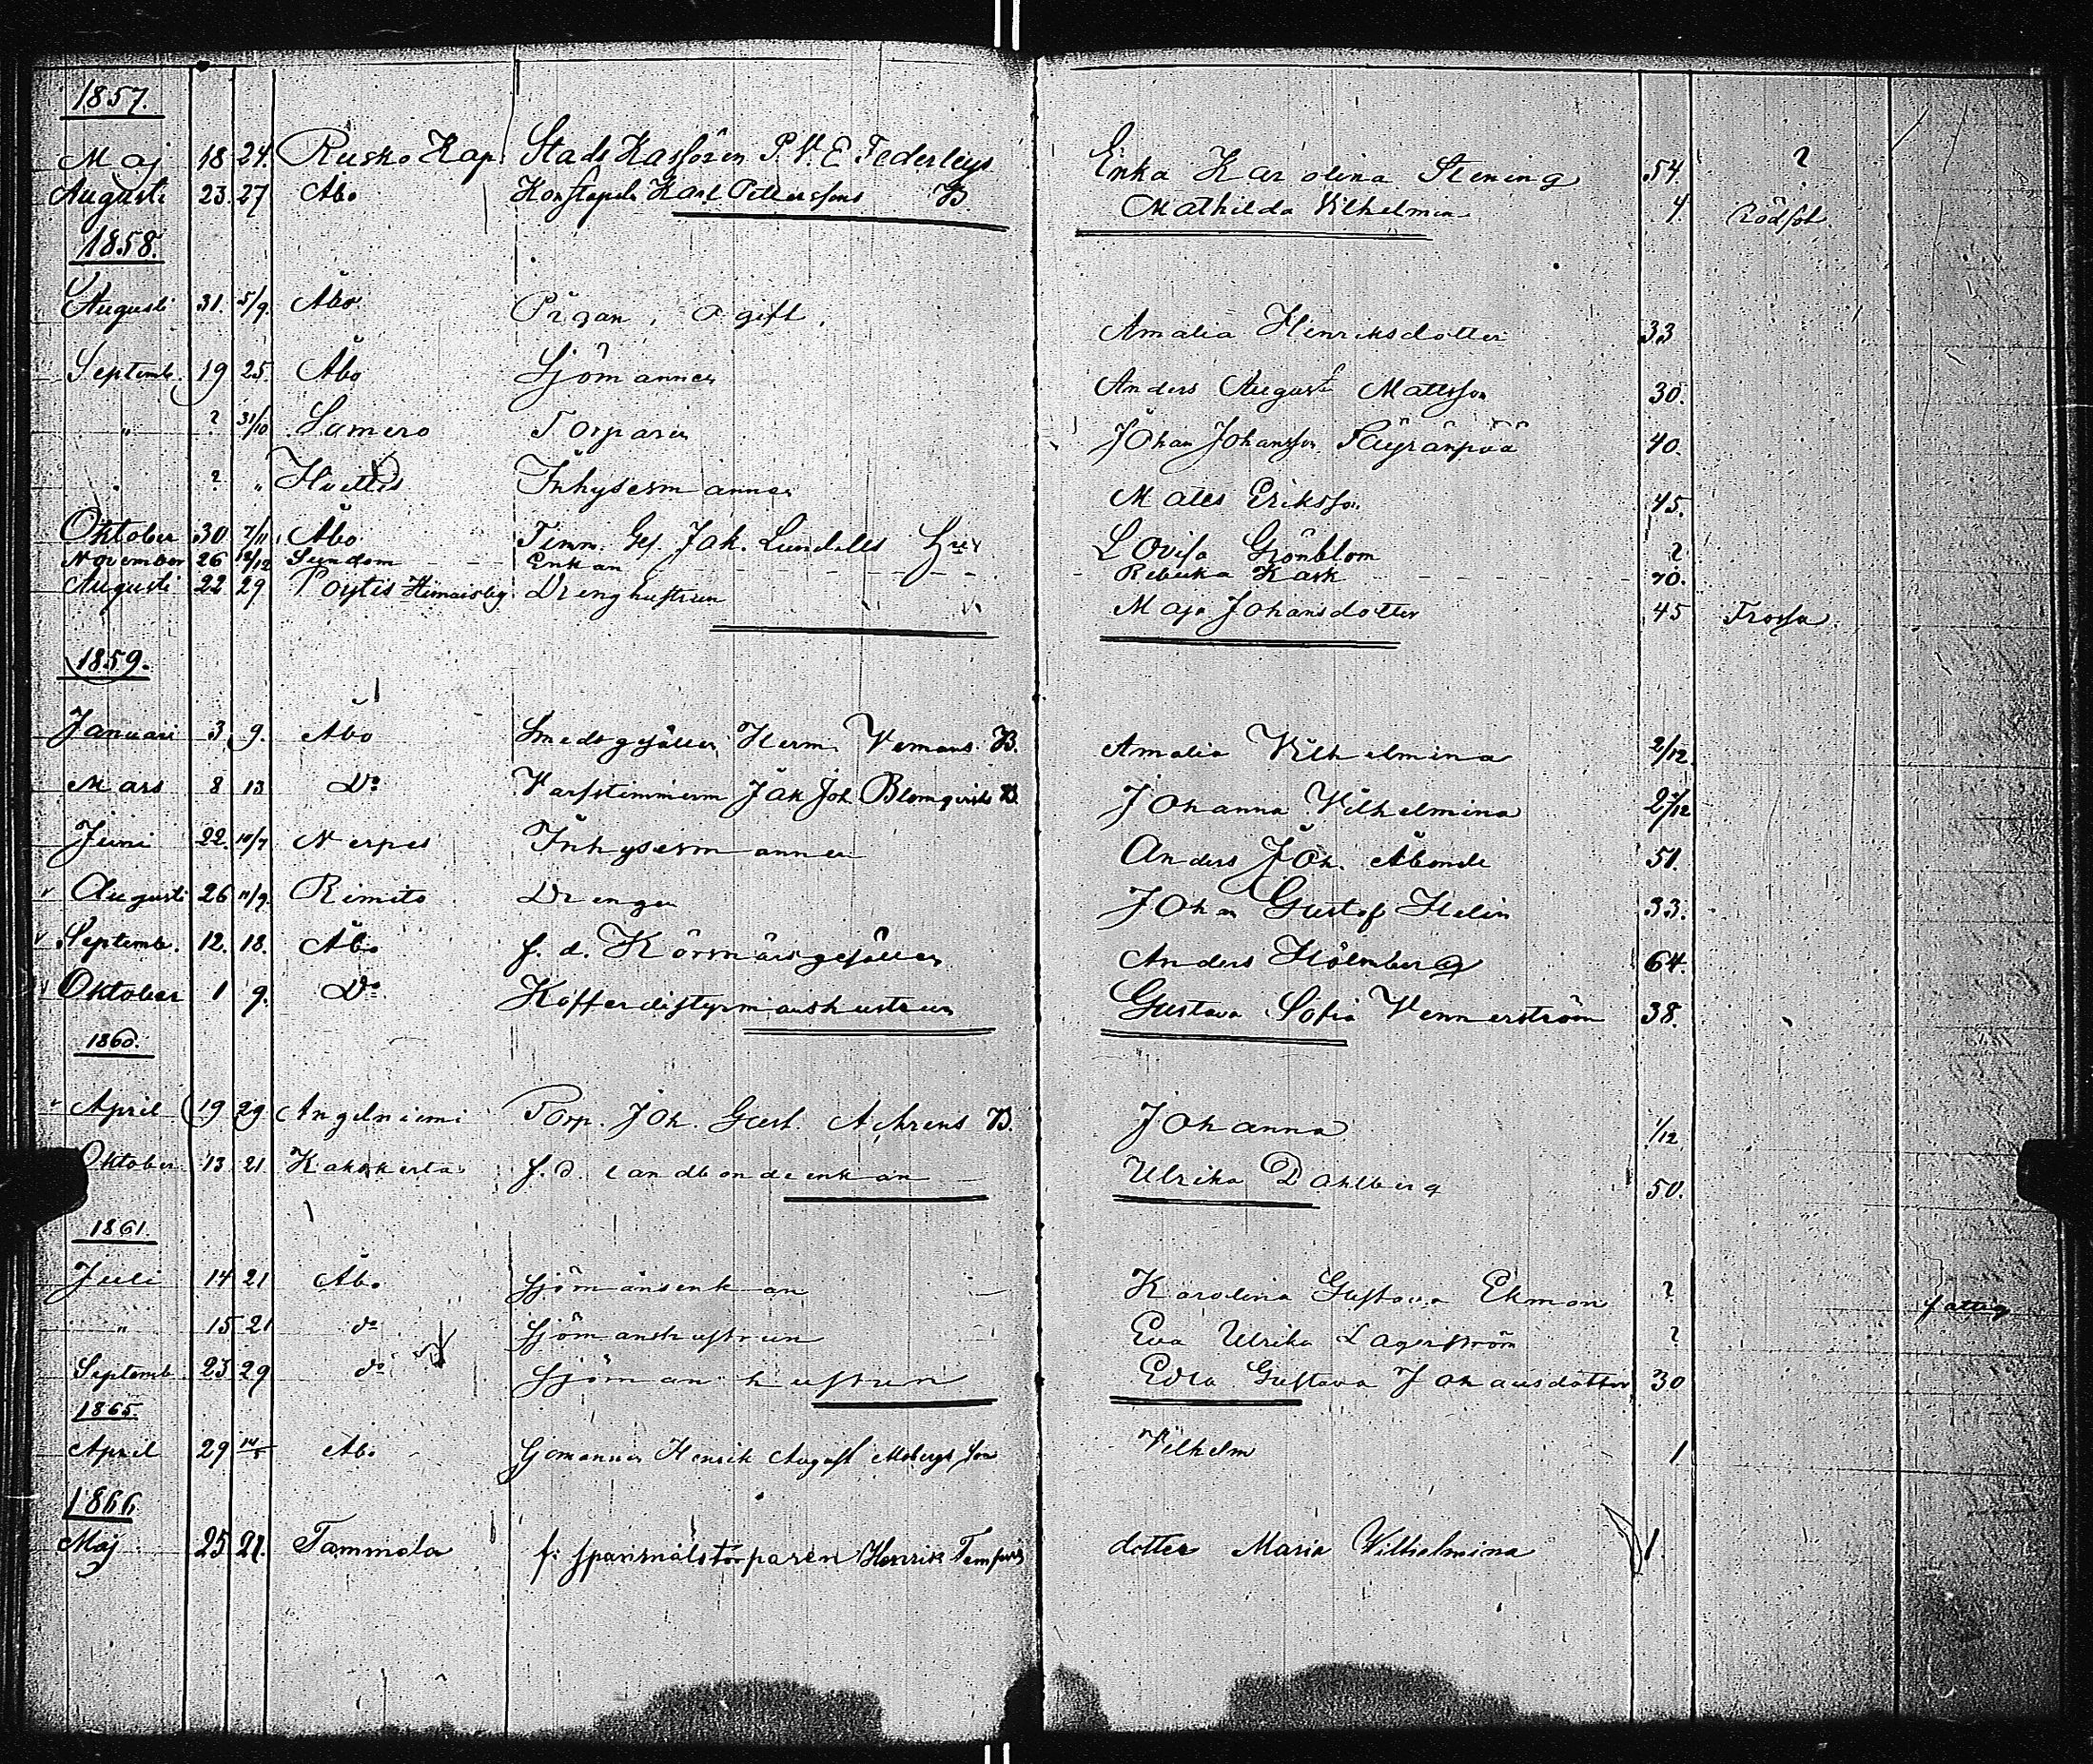 1857.
Maj 18 24. Rusko Kap. Stads Kassören P. V. E Federleys Enka Karolina Stening 54. ?
Augusti 23. 27 Åbo Konstapeln Karl Petterssons B. Mathilda Vilhelmina 4 Rödsot.
1858.
Augusti 31. 5/9. Åbo Pigan, ogift, Amalia Henriksdotter 33
Septemb. 19 25. Åbo Sjömannen Anders August Mattsson 30.
" ? 31/10 Lumero Torparen Johan Johansson 40.
" ? " Hvittis Inhysesmannen Matts Eriksson 45.
Oktober 30 7/11 Åbo Timm. Ges. Jak. Lundells Hru Lovisa Grönblom ?
November 26 12/12 Sundom Enkan Rebecka Kask 70.
Augusti 22 29 Poytis Drenghustrun Maja Johansdotter 45 Frossa.
1859.
Januari 3 9. Åbo Smedsgesällen Herm. Vemans B. Amalia Vilhelmina 2/12.
Mars 8 13 Do Varfstimmerm Jak Joh. Blomqvists B. Johanna Vilhelmina
Juni 22. 10/7 Nerpes Inhysesmannen Anders Joh. Åbonde 51.
Augusti 26 11/9. Rimito Drengen Johan Gustaf Helin 33.
Septemb. 12. 18. Åbo f. d. Körsnärsgesällen Anders Holmberg 64.
Oktober 1 9. Do Kofferdistyrmanshustrun Gustava Sofia Vennerström 38.
1860.
April 19 29 Angelniemi Torp. Joh. Gust. Ahrens B. Johanna 1/12
Oktober 13 21 Kakskerta f. d. Landbondeenkan Ulrika Dahlberg 50.
1861.
Juli 14 21 Åbo Sjömansenkan Karolina Gustava Ekman ? fattig
" 15 21 do Sjömanshustrun Eva Ulrika Lagerström ?
Septemb. 23 29 do Sjömanshustrun Edla Gustava Johansdotter 30
1865.
April 29 Åbo Sjömannen Henrik August Mobergs son Vilhelm 1
1866
Maj 25 27. Tammela f. spanmålstorparen Henrik dotter Maria Vilhelmina 1.